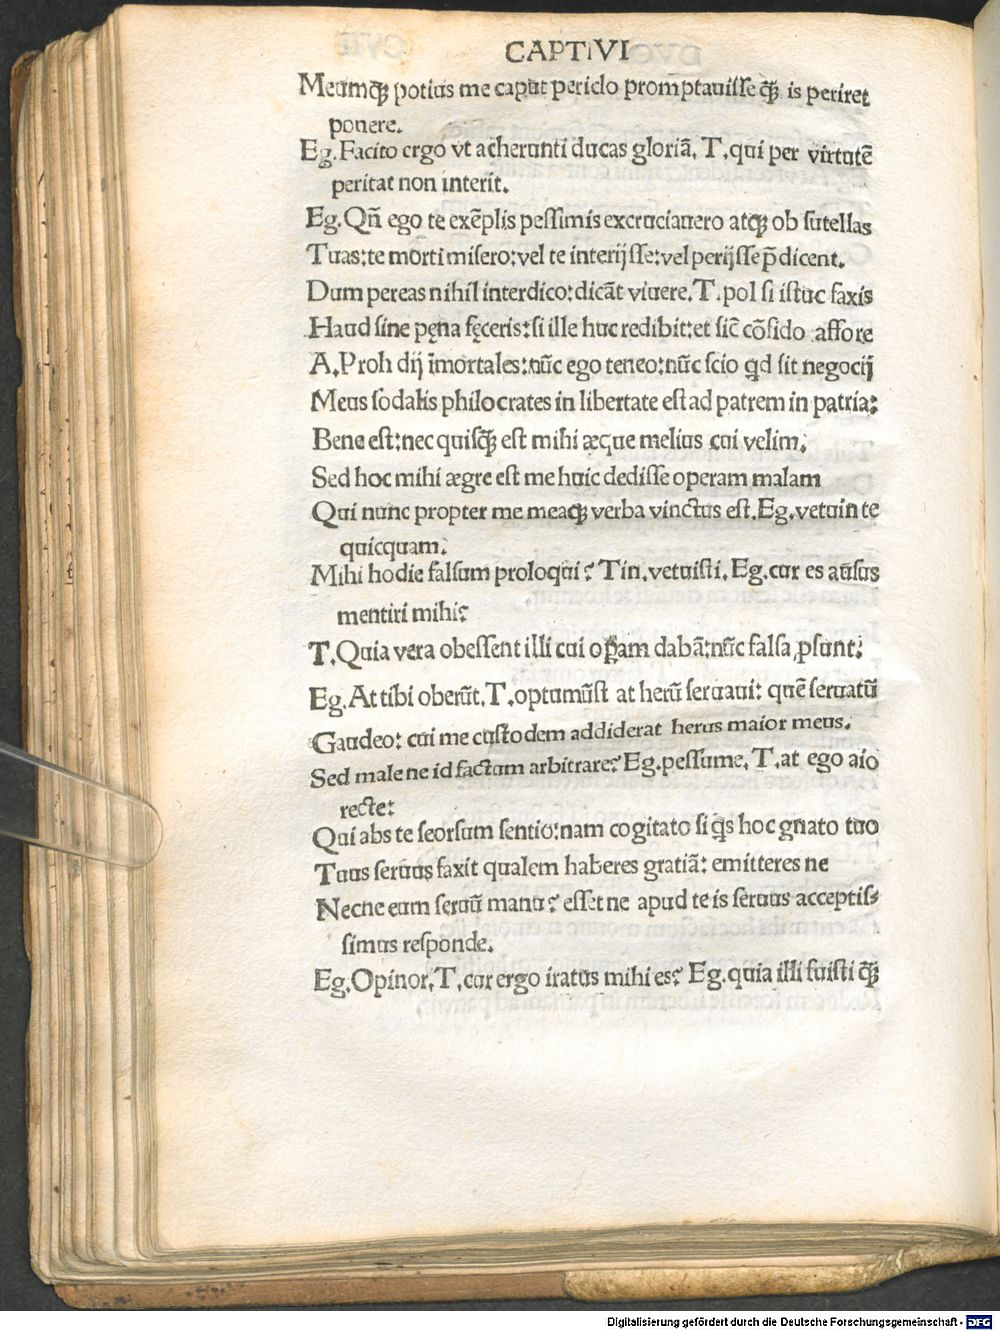 CAPTIVI
Meumqꝫ potius me caput periclo promptauiſſe ꝙ̃ is periret
ponere.
Eg. Facito ergo vt acherunti ducas gloriā. T. qui per virtutē
peritat non interit.
Eg. Qñ ego te exẽplis peſſimis excruciauero atqꝫ ob ſutellas
Tuas: te morti miſero: vel te interijſſe: vel perijſſe p̄dicent.
Dum pereas nihil interdico: dicāt viuere. T. pol ſi iſtuc faxis
Haud ſine pęna fęceris: ſi ille huc redibit: et ſic̄ cōfido affore
A. Proh dij īmortales: nūc ego teneo: nūc ſcio qd ſit negocij
Meus ſodalis philocrates in libertate eſt ad patrem in patria:
Bene eſt: nec quiſꝙ̃ eſt mihi æque melius cui velim.
Sed hoc mihi ægre eſt me huic dediſſe operam malam
Qui nunc propter me meaqꝫ verba vinctus eſt. Eg. vetuin te
quicquam.
Mihi hodie falſum proloqui? Tin. vetuiſti. Eg. cur es auſus
mentiri mihi?
T. Quia vera obeſſent illi cui oꝑam dabā: nūc falſa ꝓſunt.
Eg. At tibi oberūt. T. optumūſt at herū ſeruaui: quē ſeruatū
Gaudeo: cui me cuſtodem addiderat herus maior meus.
Sed male ne id factum arbitrare? Eg. peſſume. T. at ego aio
recte:
Qui abs te ſeorſum ſentio: nam cogitato ſi qͥs hoc gnato tuo
Tuus ſeruus faxit qualem haberes gratiā: emitteres ne
Necne eum ſeruū manu? eſſet ne apud te is ſeruus acceptiſ⸗
ſimus reſponde.
Eg. Opinor. T. cur ergo iratus mihi es? Eg. quia illi fuiſti ꝙ̃
Digitalisierung gefördert durch die Deutsche Forschungsgemeinschaft - DFG